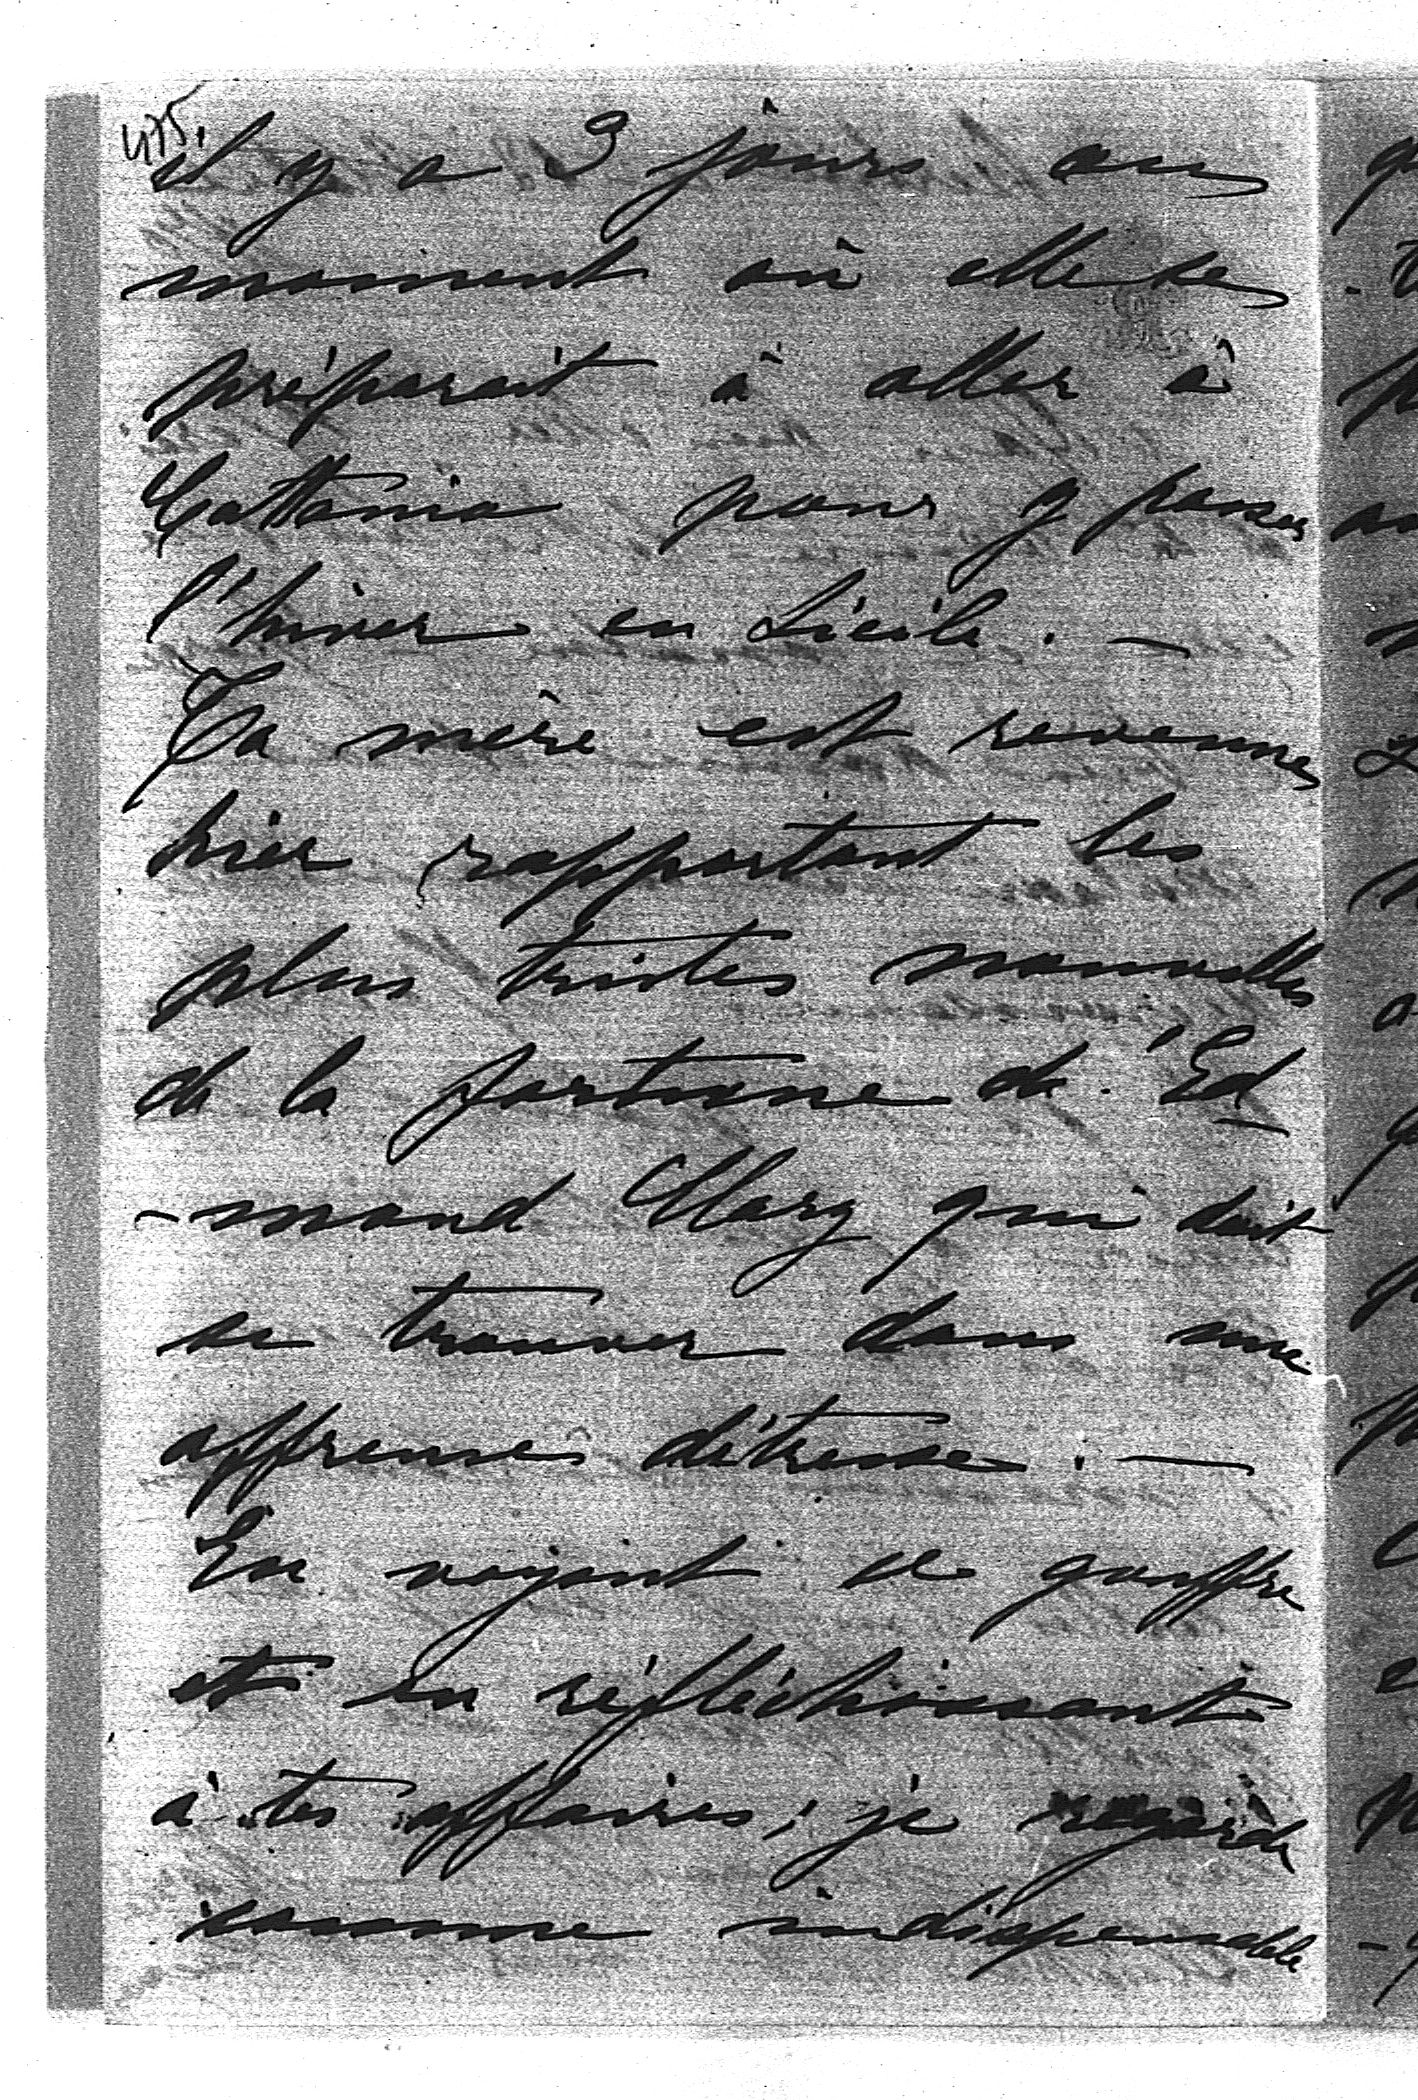 475.
il y a 3 jours au
moment où elle se
préparait à aller à
Cattania pour y passer
l'hiver en Sicile. —
Ta mère est revenue
hier rapportant les
plus tristes nouvelles
de la fortune de Ed
-mond Mary qui doit
se trouver dans une
affreuse détresse. —
En voyant ce gouffre
et en réfléchissant
à tes affaires, je regarde
comme indispensable